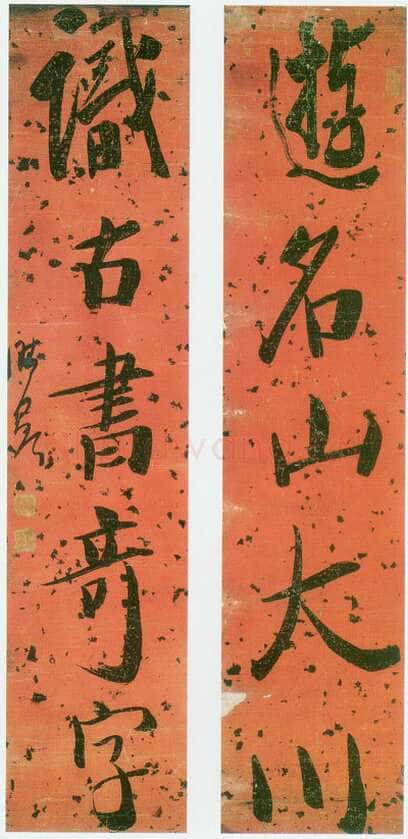 遊名山大川
識古書奇字